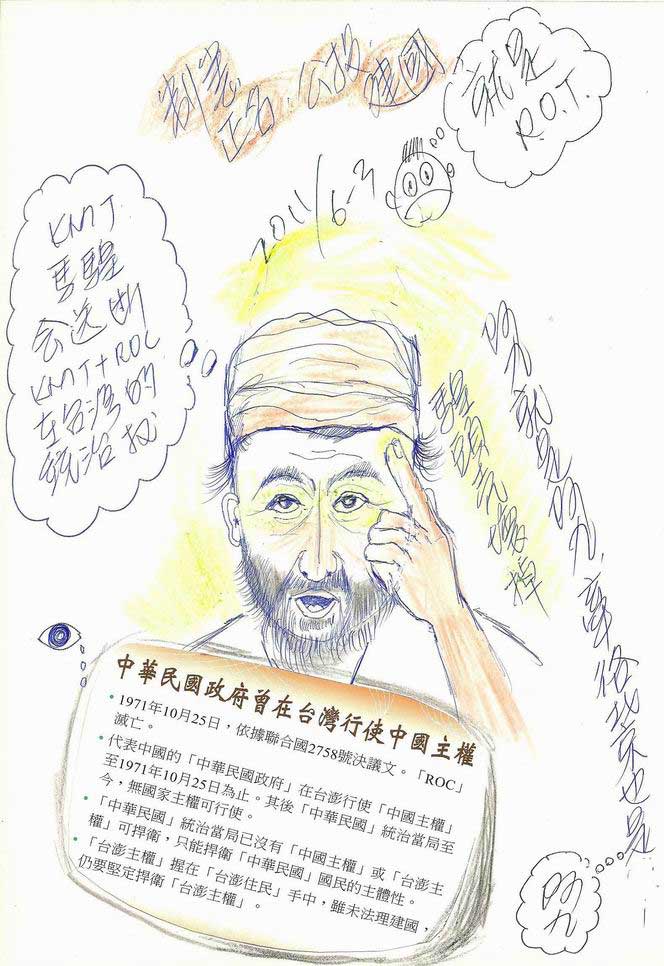 制憲.正名.公投.建國
就是
R.O.T.
2011/6-3
KMT.
馬騜
会送断
KMT+ROC
在台湾的
統治权
就是
北京也是
中華民國政府曾在台灣行使中國主權
•1971年10月25日，依據聯合國2758號決議文。「ROC」
滅亡。
•代表中國的「中華民國政府」在台澎行使「中國主權」
至1971年10月25日為止。其後「中華民國」統治當局至
今，無國家主權可行使。
•「中華民國」統治當局已沒有「中國主權」或「台澎主
權」可捍衛，只能捍衛「中華民國」國民的主體性。
•「台澎主權」握在「台澎住民」手中，雖未法理建國，
仍要堅定捍衛「台澎主權」。